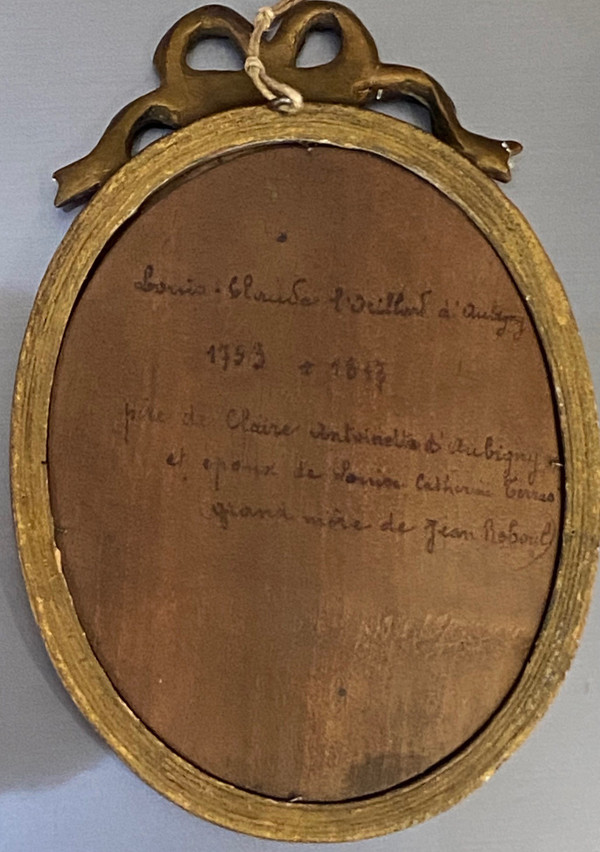 Louis-Claude l'Oeillard d'Aubigny
1753 + 18
père de Claire Antoinette d'Aubigny
et epoux de Louise Catherine Terras
grand mère de Jean Reboul